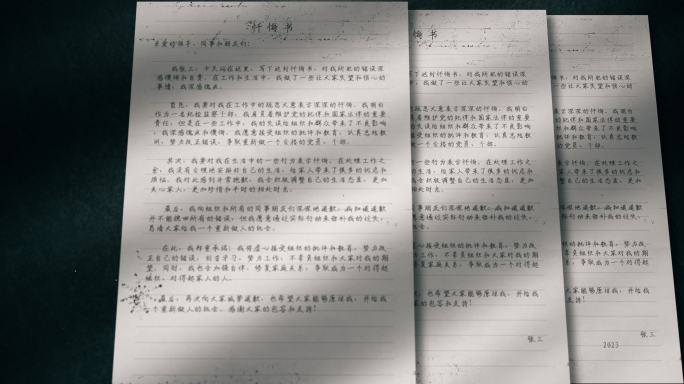 忏悔书
亲爱的领导、同事和朋友们：
我张三，今天站在这里，写下这封忏悔书，对我所犯的错误深
感懊悔和自责。在工作和生活中，我做了一些让大家失望和伤心的
事情，我深感愧疚。
首先，我要对我在工作中的疏忽大意表示深深的忏悔。我明白
作为一名纪检监察干部，我肩负着维护党的纪律和国家法律的重要
责任，但是在一些工作中，我的失误给组织和群众带来了不良影响
，我深感愧疚和懊悔。我愿意接受组织的批评和教育，认真总结教
训，努力改正错误，争取重新做一个合格的党员、干部。
其次，我要对我在生活中的一些行为表示忏悔。在处理工作之
余，我没有合理地安排好自己的生活，给家人带来了很多的忧虑和
烦恼。我对此感到非常抱歉，我会积极调整自己的生活态度，更加
关心家人，更加珍惜和平时的相处时光。
最后，我向组织和所有的同事朋友们深深地道歉。我知道道歉
并不能挽回所有的错误，但我愿意通过实际行动来弥补我的过失。
恳请大家给我一个重新做人的机会。
在此，我郑重承诺：我将虚心接受组织的批评和教育，努力改
正自己的错误，刻苦学习，努力工作，不辜负组织和大家对我的期
望。同时，我也会加强自律，修复家庭关系，争取成为一个对得起
组织、对得起家人的人。
最后，再次向大家诚挚道歉，也希望大家能够原谅我，并给我
一个重新做人的机会。感谢大家的包容和支持！
张三
张三
2023